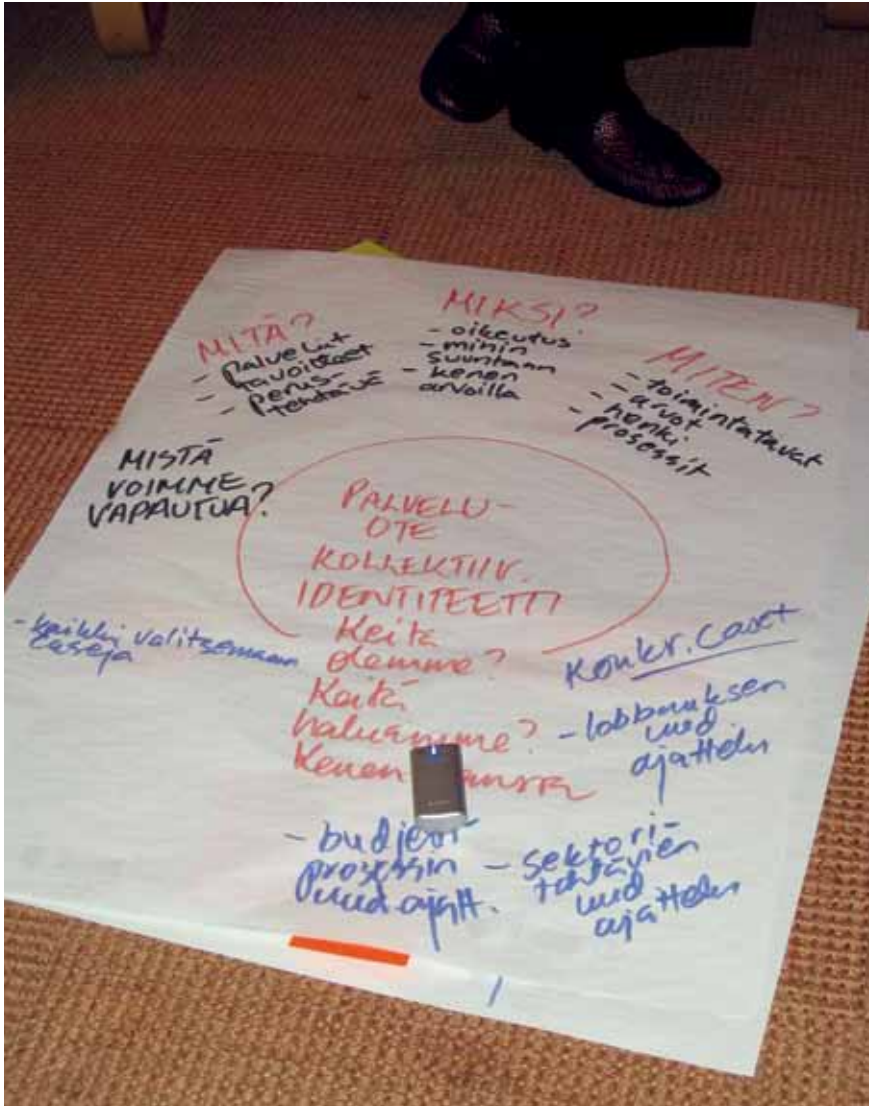 MITÄ?
- palvelut
- tavoitteet
- perus-
tehtävä
MIKSI?
- oikeutus
- mihin
suuntaan
- kenen
arvoilla
MITEN?
- toimintatavat
- arvot
- henki
- prosessit
MISTÄ
VOIMME
VAPAUTUA?
PALVELU-
OTE
KOLLEKTIIV.
IDENTITEETTI
Keitä
olemme?
Keitä
haluamme?
Kenen
- kaikki valitsemaan
caseja
Konkr. caset
- lobbauksen
uud.
ajattelu
- budjetti-
prosessin
uud. ajatt.
- sektori-
tehtävien
uud
ajattelu